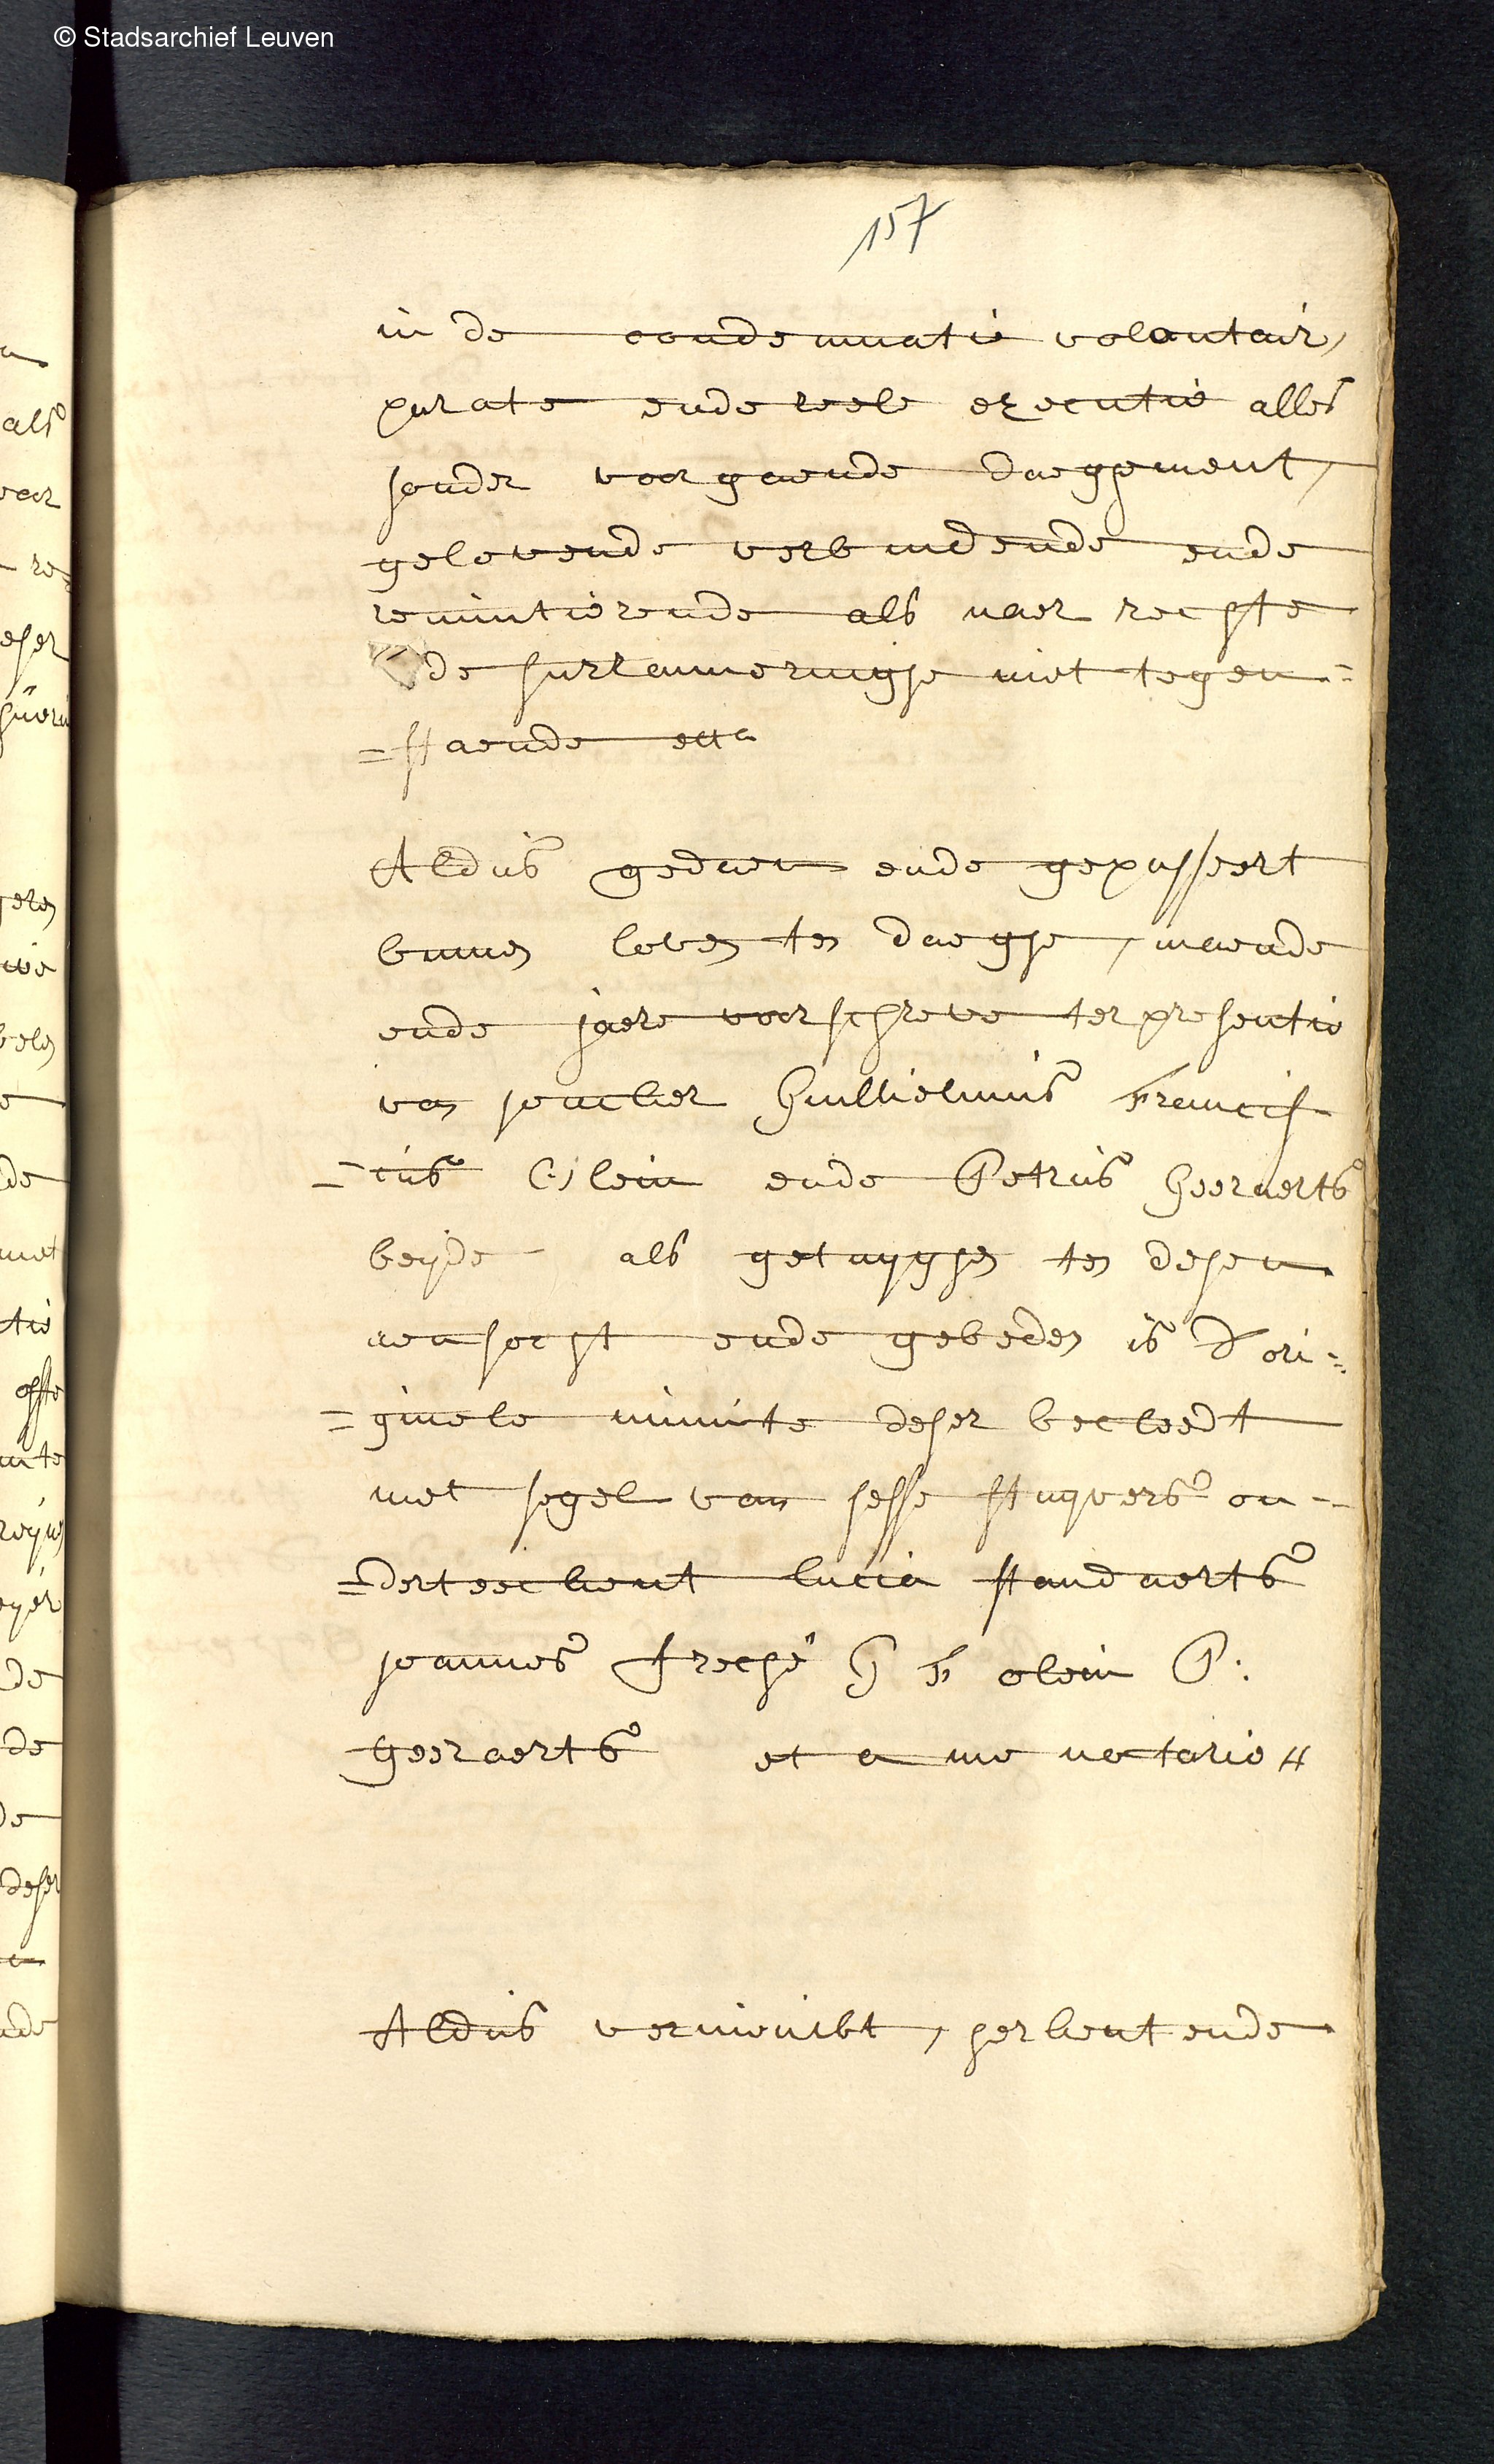 © Stadsarchief Leuven
157
in de condemnatie volontair,
parate ende reele executie alles
sonder voorgaende daeghement,
gelovende verbindende ende
renuntierende als naer rechte
de surrannueringhe niet tegen=
=staende etca
Aldus gedaen ende gepasseert
binnen loven ten daeghe, maende
ende jaere voorschreve ter presentie
van joncker Guillielmus Francis
=cus Olein ende Petrus Geeraerts
beyde als getuyghen ten desen
aensocht ende gebeden is d'ori=
=ginele minute deser becleedt
met segel van sesse stuyvers on=
=derteekent lucia standaerts
joannes freché G F olein P:
Geeraerts et a me notario
Aldus vernieuwt, herkent ende